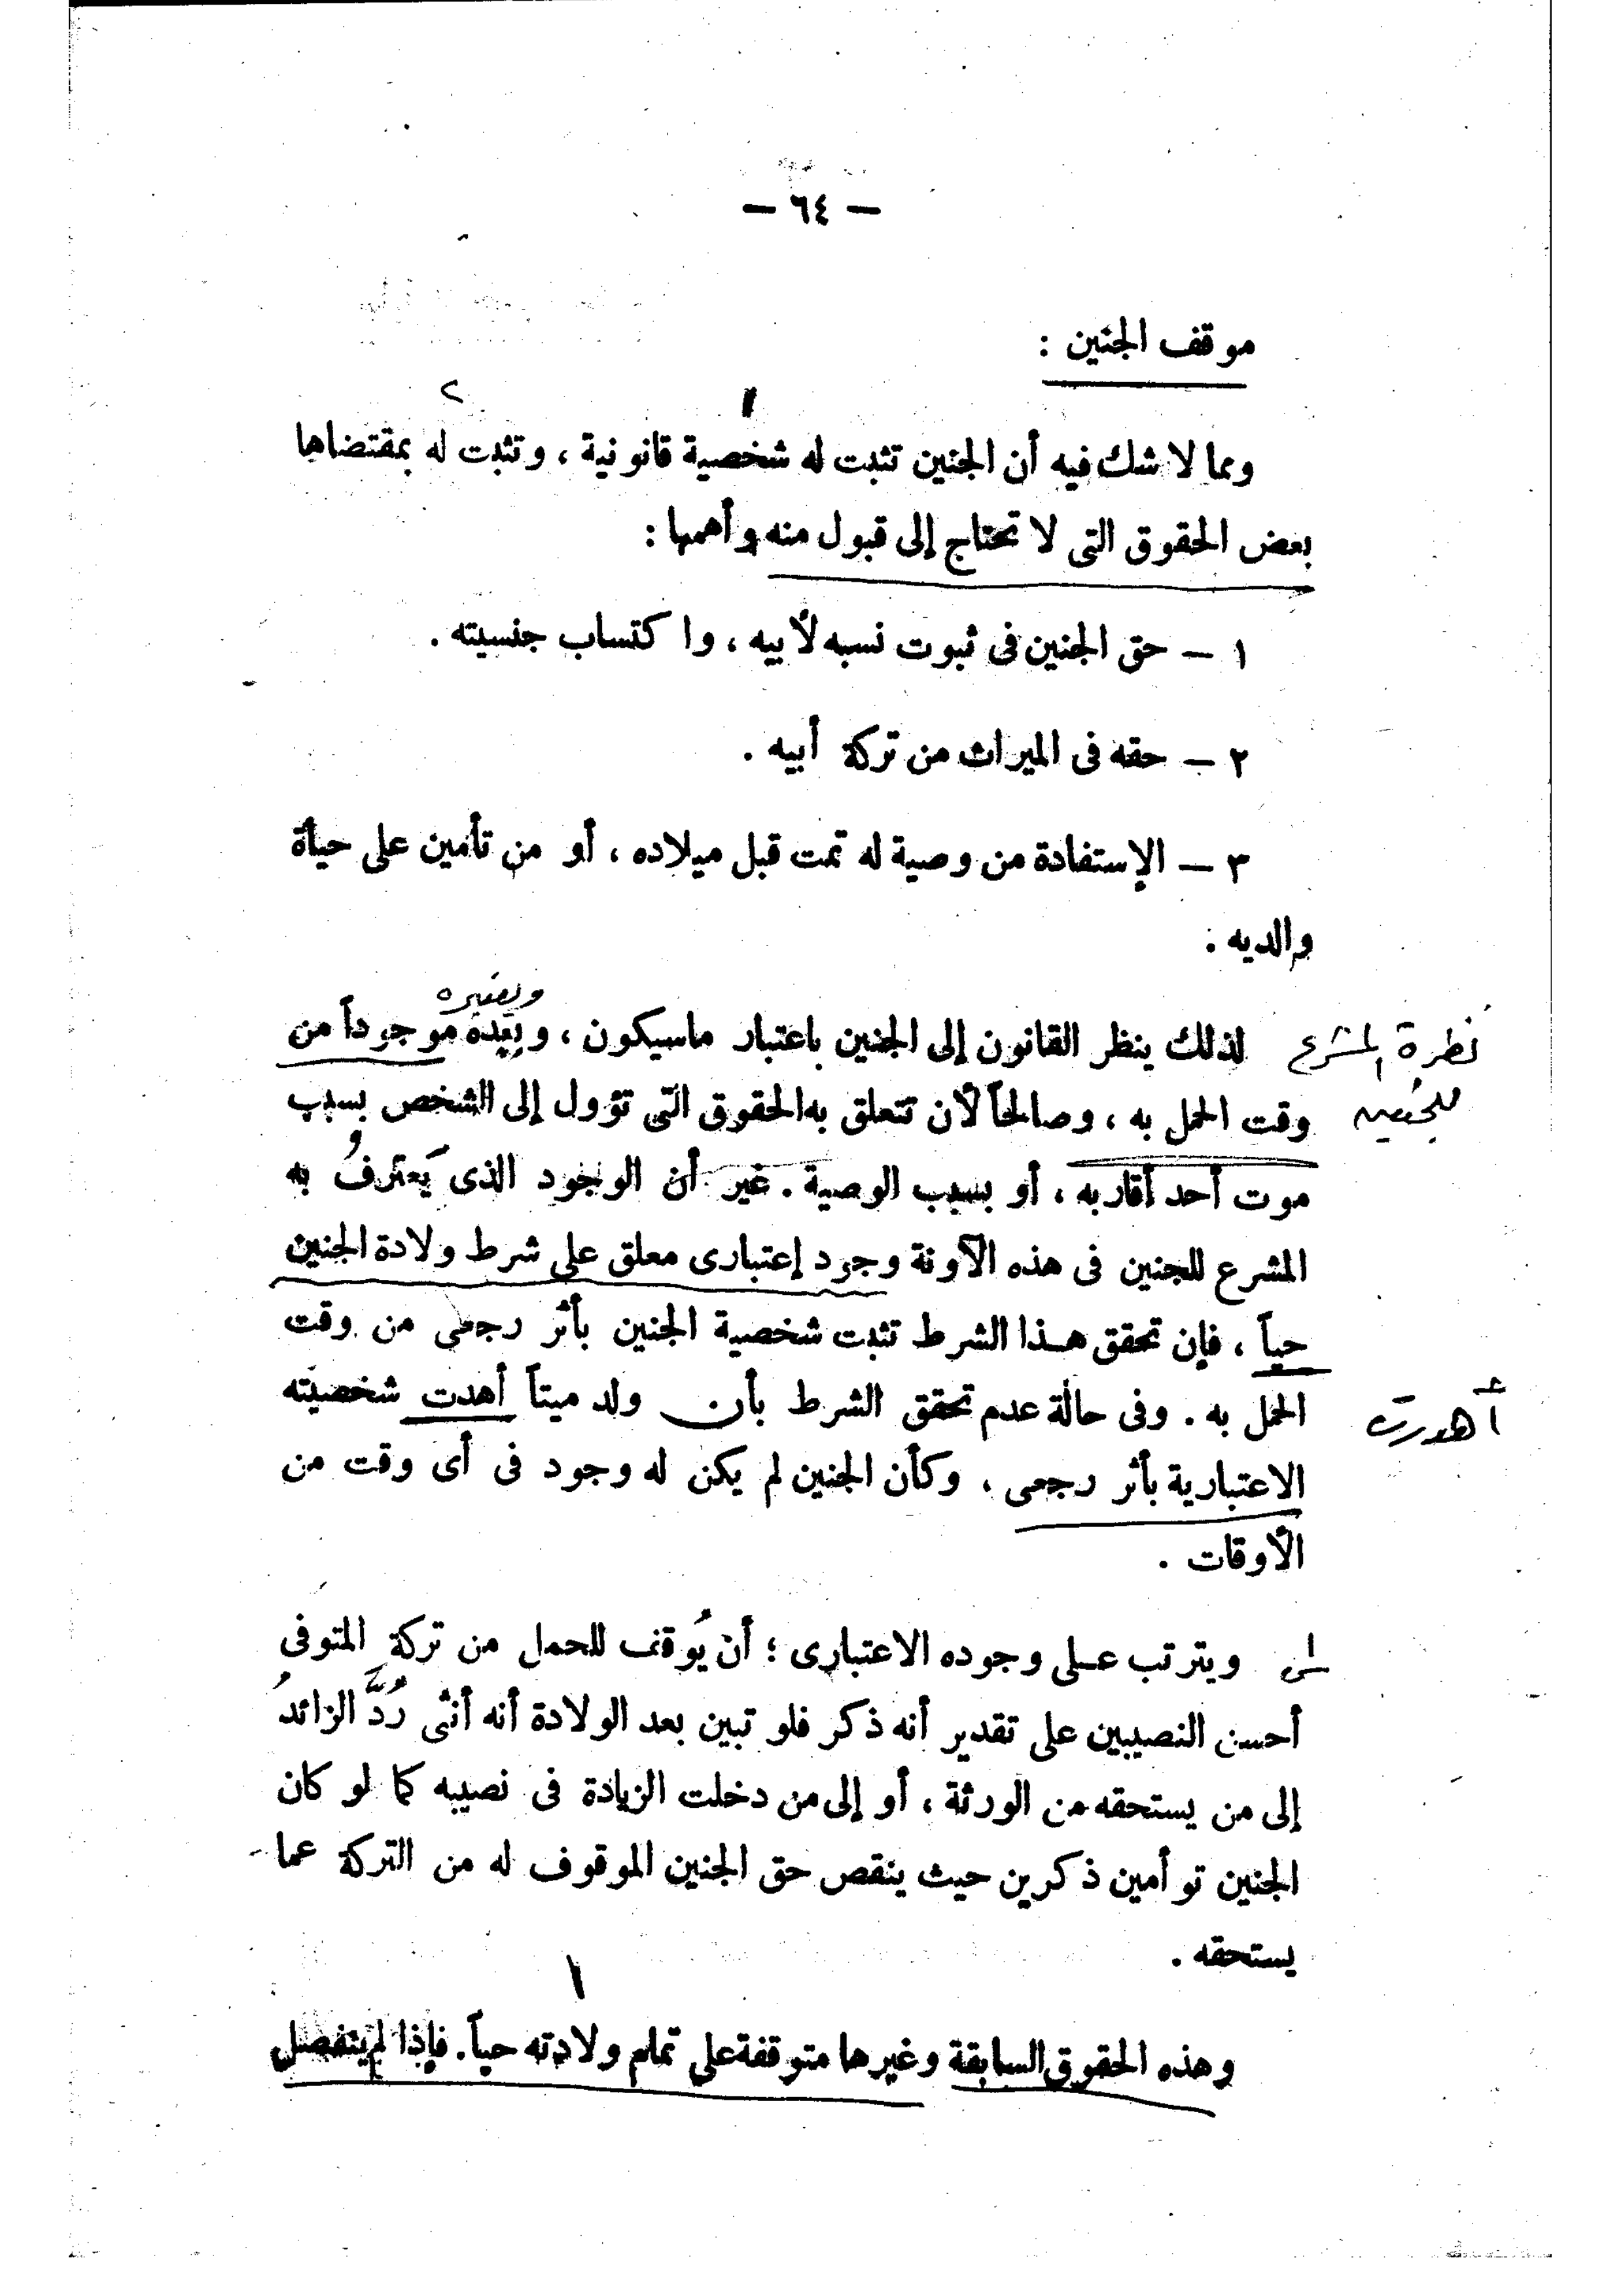 — ٦٤ —
موقف الجنين :
ومما لا شك فيه أن الجنين تثبت له شخصية قانونية ، وتثبت له بمقتضاها
بعض الحقوق التى لا تحتاج إلى قبول منه وأهمها :
١ — حق الجنين فى ثبوت نسبه لأبيه ، واكتساب جنسيته .
٢ — حقه فى الميراث من تركة أبيه .
٣ — الإستفادة من وصية له تمت قبل ميلاده ، أو من تأمين على حياة
والديه .
ويعتبره
نظرة المشرع لذلك ينظر القانون إلى الجنين باعتبار ماسيكون ، ويعده موجوداً من
للجنين وقت الحمل به ، وصالحاً لأن تتعلق به الحقوق التى تؤول إلى الشخص بسبب
موت أحد أقاربه ، أو بسبب الوصية . غير أن الوجود الذى يَعترفُ به
المشرع للجنين فى هذه الآونة وجود إعتبارى معلق على شرط ولادة الجنين
حياً ، فإن تحقق هـذا الشرط تثبت شخصية الجنين بأثر رجعى من وقت
أهدرت الحمل به . وفى حالة عدم تحقق الشرط بأن ولد ميتاً أهدت شخصيته
الاعتبارية بأثر رجعى ، وكأن الجنين لم يكن له وجود فى أى وقت من
الأوقات .
ويترتب عـلى وجوده الاعتبارى ؛ أن يُوقف للحمل من تركة المتوفى
أحسن النصيبين على تقدير أنه ذكر فلو تبين بعد الولادة أنه أنثى رُدَّ الزائدُ
إلى من يستحقه من الورثة ، أو إلى من دخلت الزيادة فى نصيبه كما لو كان
الجنين توأمين ذكرين حيث ينقص حق الجنين الموقوف له من التركة عما
يستحقه .
١
وهذه الحقوق السابقة وغيرها متوقفة على تمام ولادته حياً . فإذا لم ينفصل